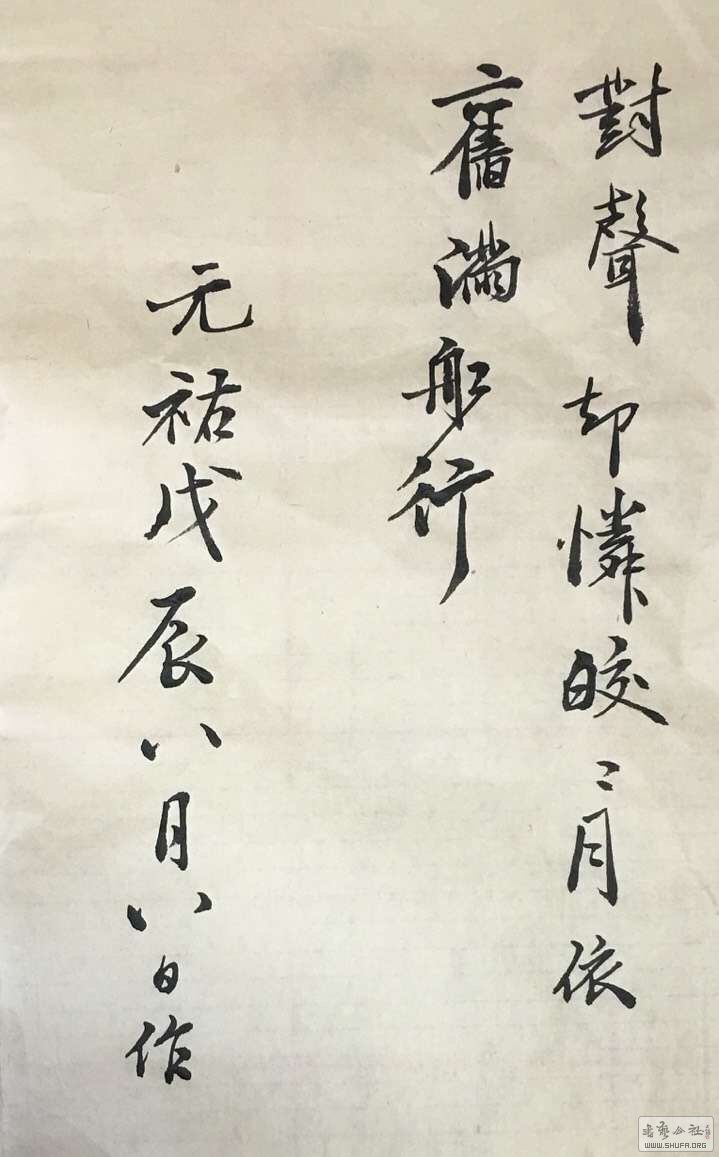 對聲却憐皎〻月依
舊滿舡行
元祐戊辰八月八日作
書藝公社
WWW.SHUFA.ORG